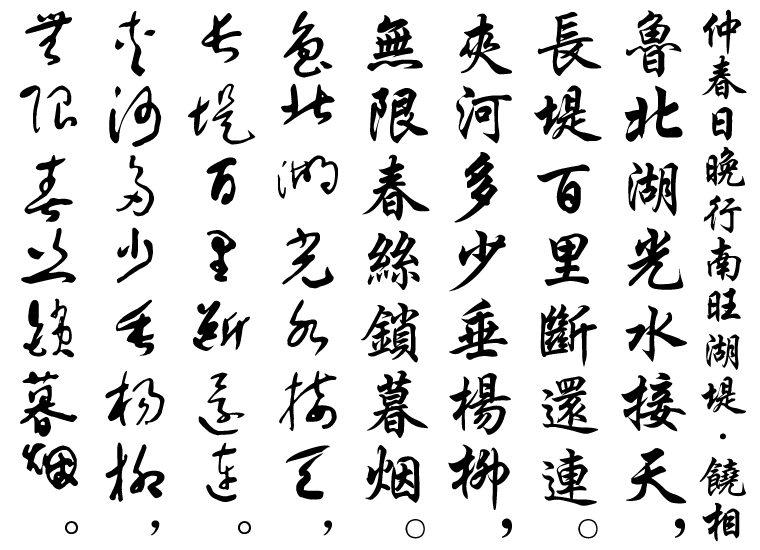 仲春日晚行南旺湖堤·饒相
魯北湖光水接天，
長堤百里斷還連。
夾河多少垂楊柳，
無限春絲鎖暮烟。
魯北湖光水接天，
長堤百里斷還連。
夾河多少垂楊柳，
無限春絲鎖暮烟。